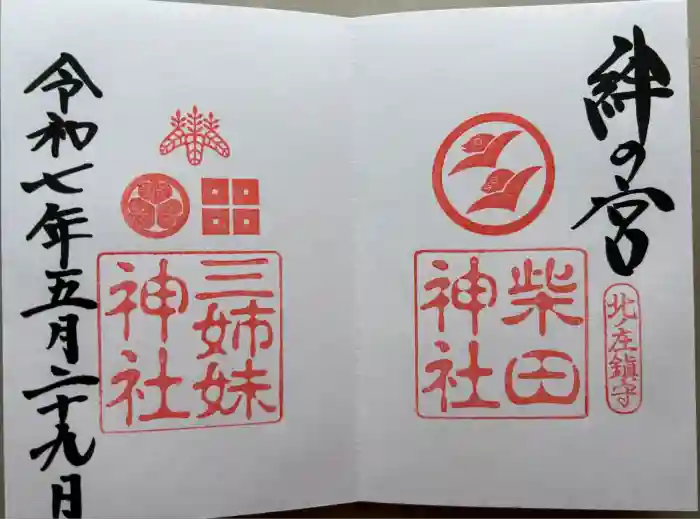 絆の宮
北ノ庄鎮守
柴田
神社
三姉妹
神社
令和七年五月二十九日